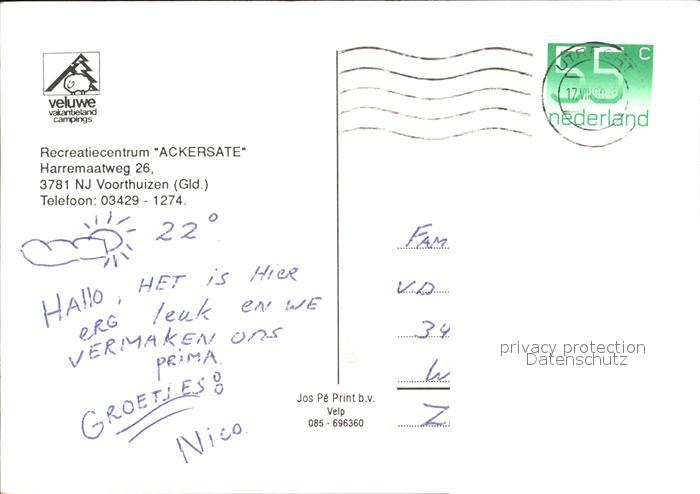 veluwe
vakantieland
campings
Recreatiecentrum "ACKERSATE"
Harremaatweg 26,
3781 NJ Voorthuizen (Gld.)
Telefoon: 03429 - 1274.
22°
HAllo, HET is Hier
ERG leuk en WE
VERMAKEN ons
PRIMA.
GROETJES!
Nico.
Jos Pé Print b.v.
Velp
085 - 696360
55 c
nederland
UTRECHT
17 VII
FAM
VD
34
W
Z
privacy protection
Datenschutz